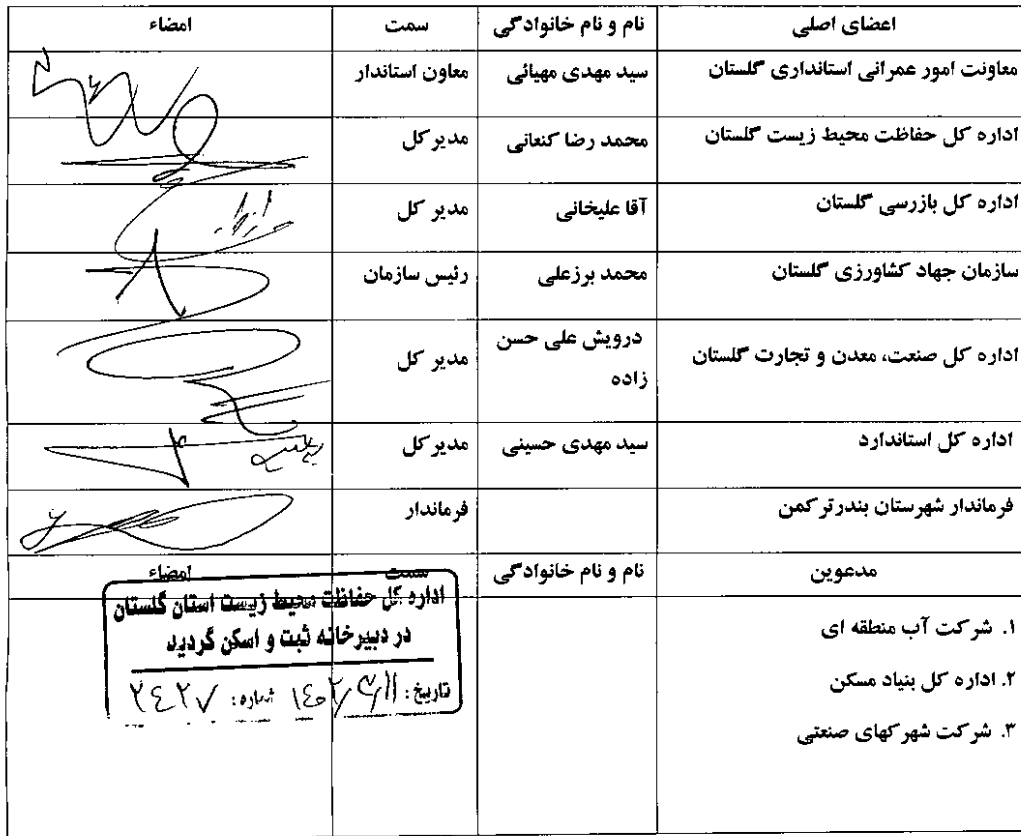 اعضای اصلی نام و نام خانوادگی سمت امضاء
معاونت امور عمرانی استانداری گلستان سید مهدی مهیائی معاون استاندار
اداره کل حفاظت محیط زیست گلستان محمد رضا کنعانی مدیر کل
اداره کل بازرسی گلستان آقا علیخانی مدیر کل
سازمان جهاد کشاورزی گلستان محمد برزعلی رئیس سازمان
اداره کل صنعت، معدن و تجارت گلستان درویش علی حسن مدیر کل
زاده
اداره کل استاندارد سید مهدی حسینی مدیر کل
فرماندار شهرستان بندرترکمن فرماندار
مدعوین نام و نام خانوادگی سمت امضاء
۱. شرکت آب منطقه ای
۲. اداره کل بنیاد مسکن
۳. شرکت شهرکهای صنعتی
اداره کل حفاظت محیط زیست استان گلستان
در دبیرخانه ثبت و اسکن گردید
تاریخ: شماره: ۲۴۲۷